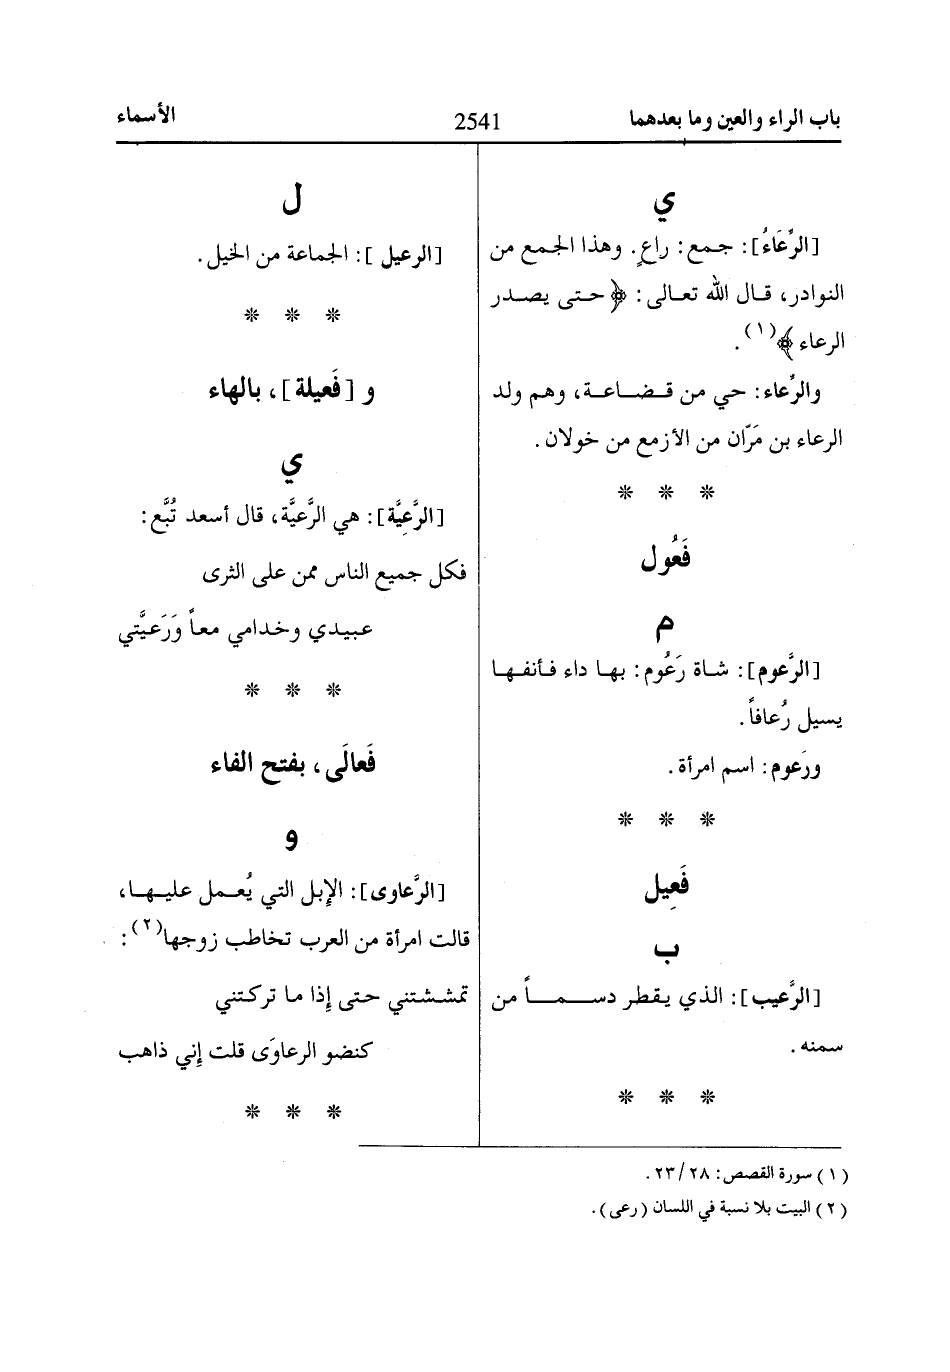 باب الراء والعين وما بعدهما 2541 الأسماء
ي
[الرِّعَاءُ]: جمع: راعٍ. وهذا الجمع من
النوادر، قال الله تعالى: ﴿ حتى يصدر
الرعاء ﴾(١).
والرِّعاء: حي من قضاعة، وهم ولد
الرعاء بن مَرّان من الأزمع من خولان.
* * *
فَعُول
م
[الرَّعوم]: شاة رَعُوم: بها داء فأنفها
يسيل رُعافاً.
ورَعوم: اسم امرأة.
* * *
فَعِيل
ب
[الرَّعيب]: الذي يقطر دسماً من
سمنه.
* * *
ل
[الرعيل]: الجماعة من الخيل.
* * *
و [فَعيلة]، بالهاء
ي
[الرَّعِيَّة]: هي الرَّعيَّة، قال أسعد تُبَّع:
فكل جميع الناس ممن على الثرى
عبيدي وخدامي معاً وَرَعيَّتي
* * *
فَعالَى، بفتح الفاء
و
[الرَّعاوى]: الإبل التي يُعمل عليها،
قالت امرأة من العرب تخاطب زوجها(٢):
تمششتني حتى إذا ما تركتني
كنضو الرعاوَى قلت إني ذاهب
* * *
(١) سورة القصص: ٢٨/ ٢٣.
(٢) البيت بلا نسبة في اللسان (رعى).